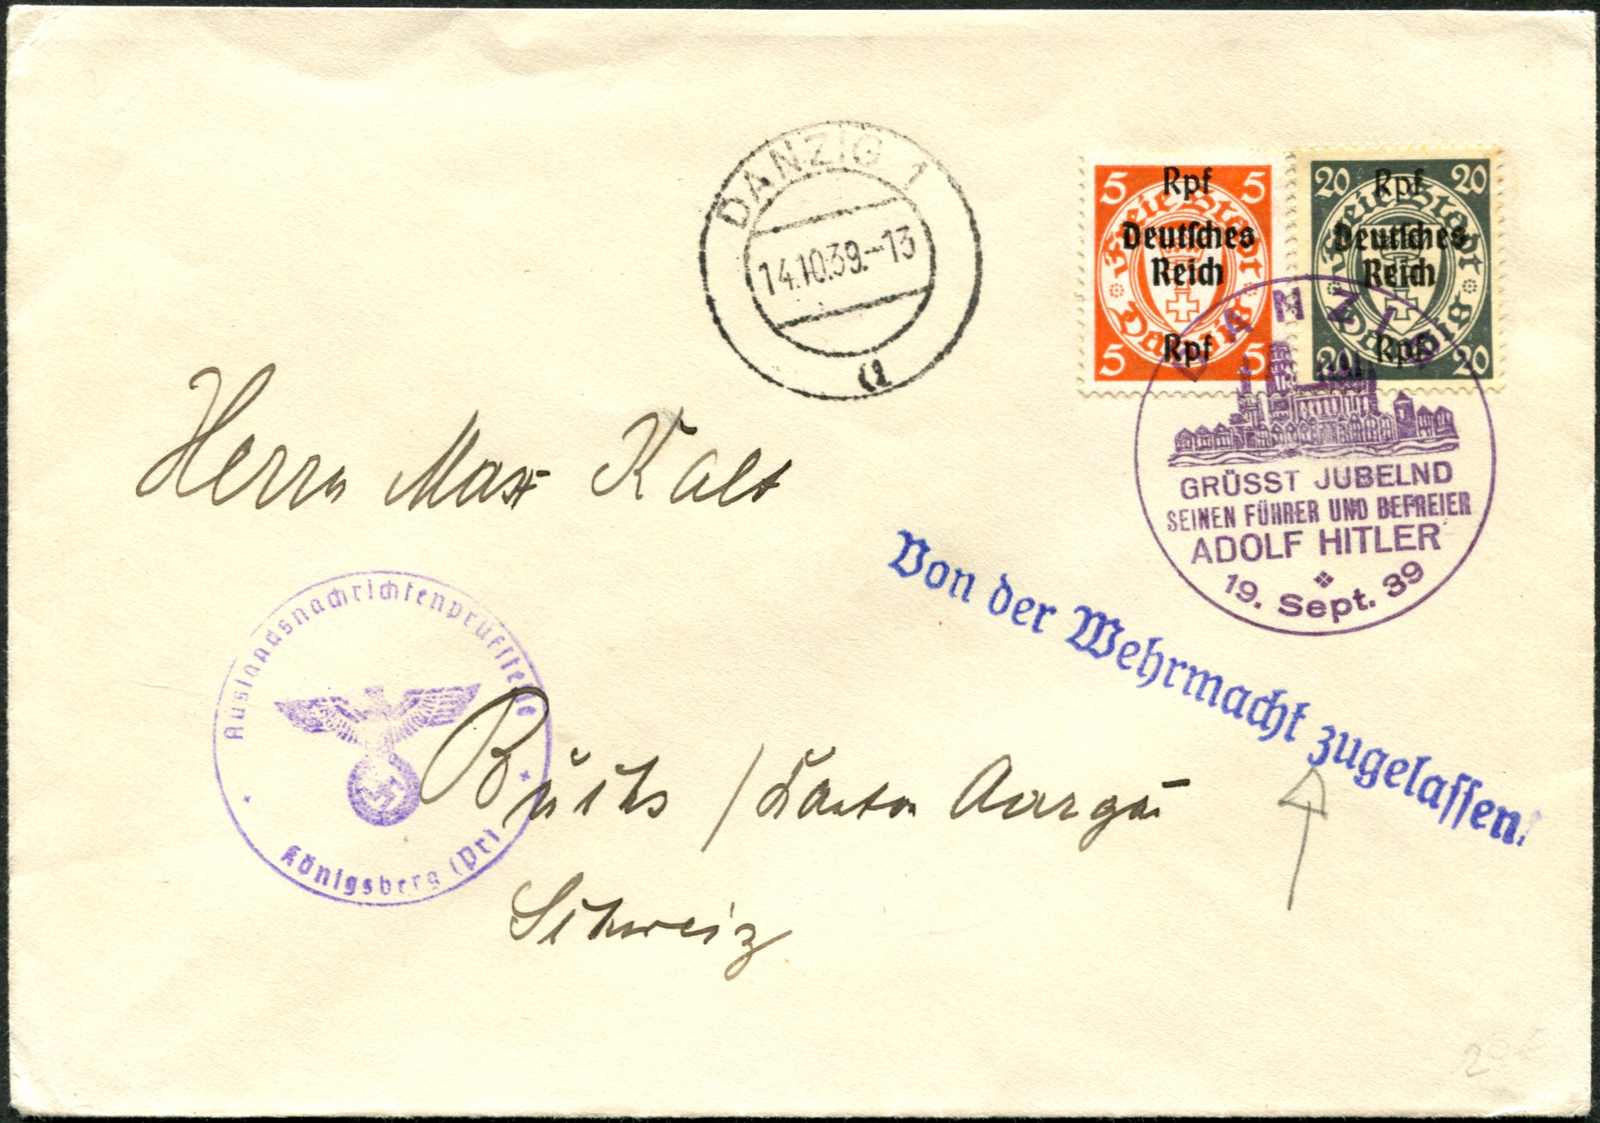 DANZIG 1
14.10.39.-13
5 Rpf 5
Deutsches
Reich
5 Rpf 5
Freie Stadt
Danzig
20 Rpf 20
Deutsches
Reich
20 Rpf 20
Freie Stadt
Danzig
DANZIG
GRÜSST JUBELND
SEINEN FÜHRER UND BEFREIER
ADOLF HITLER
19. Sept. 39
Herrn Max Kalt
Von der Wehrmacht zugelassen.
Auslandsnachrichtenprüfstelle
Königsberg (Pr)
Buchs / Kanton Aargau
Schweiz